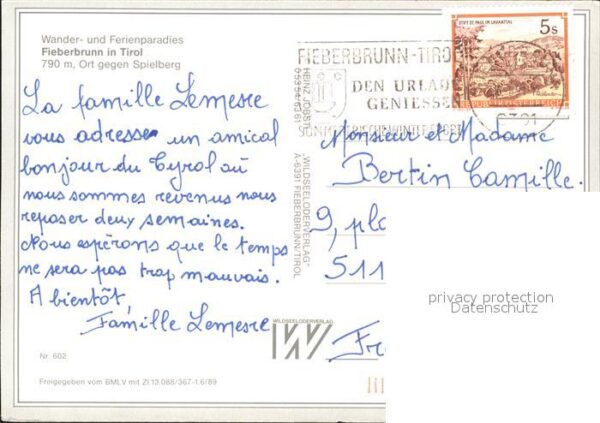 Wander- und Ferienparadies
Fieberbrunn in Tirol
790 m, Ort gegen Spielberg
La famille Lemesre
vous adresse un amical
bonjour du Tyrol où
nous sommes revenus nous
reposer deux semaines.
Nous espérons que le temps
ne sera pas trop mauvais.
A bientôt,
Famille Lemesre
Nr. 602
Freigegeben vom BMLV mit Zl.13.088/367-1.6/89
HEINZ JOBST
"WILDSEELODERVERLAG"
A-6391 FIEBERBRUNN/TIROL
WILDSEELODERVERLAG
W
FIEBERBRUNN-TIROL
DEN URLAUB
GENIESSEN
6391
STIFT ST. PAUL IM LAVANTTAL
5s
REPUBLIK ÖSTERREICH
Monsieur et Madame
Bertin Camille.
9, pla
511
Fr
privacy protection
Datenschutz